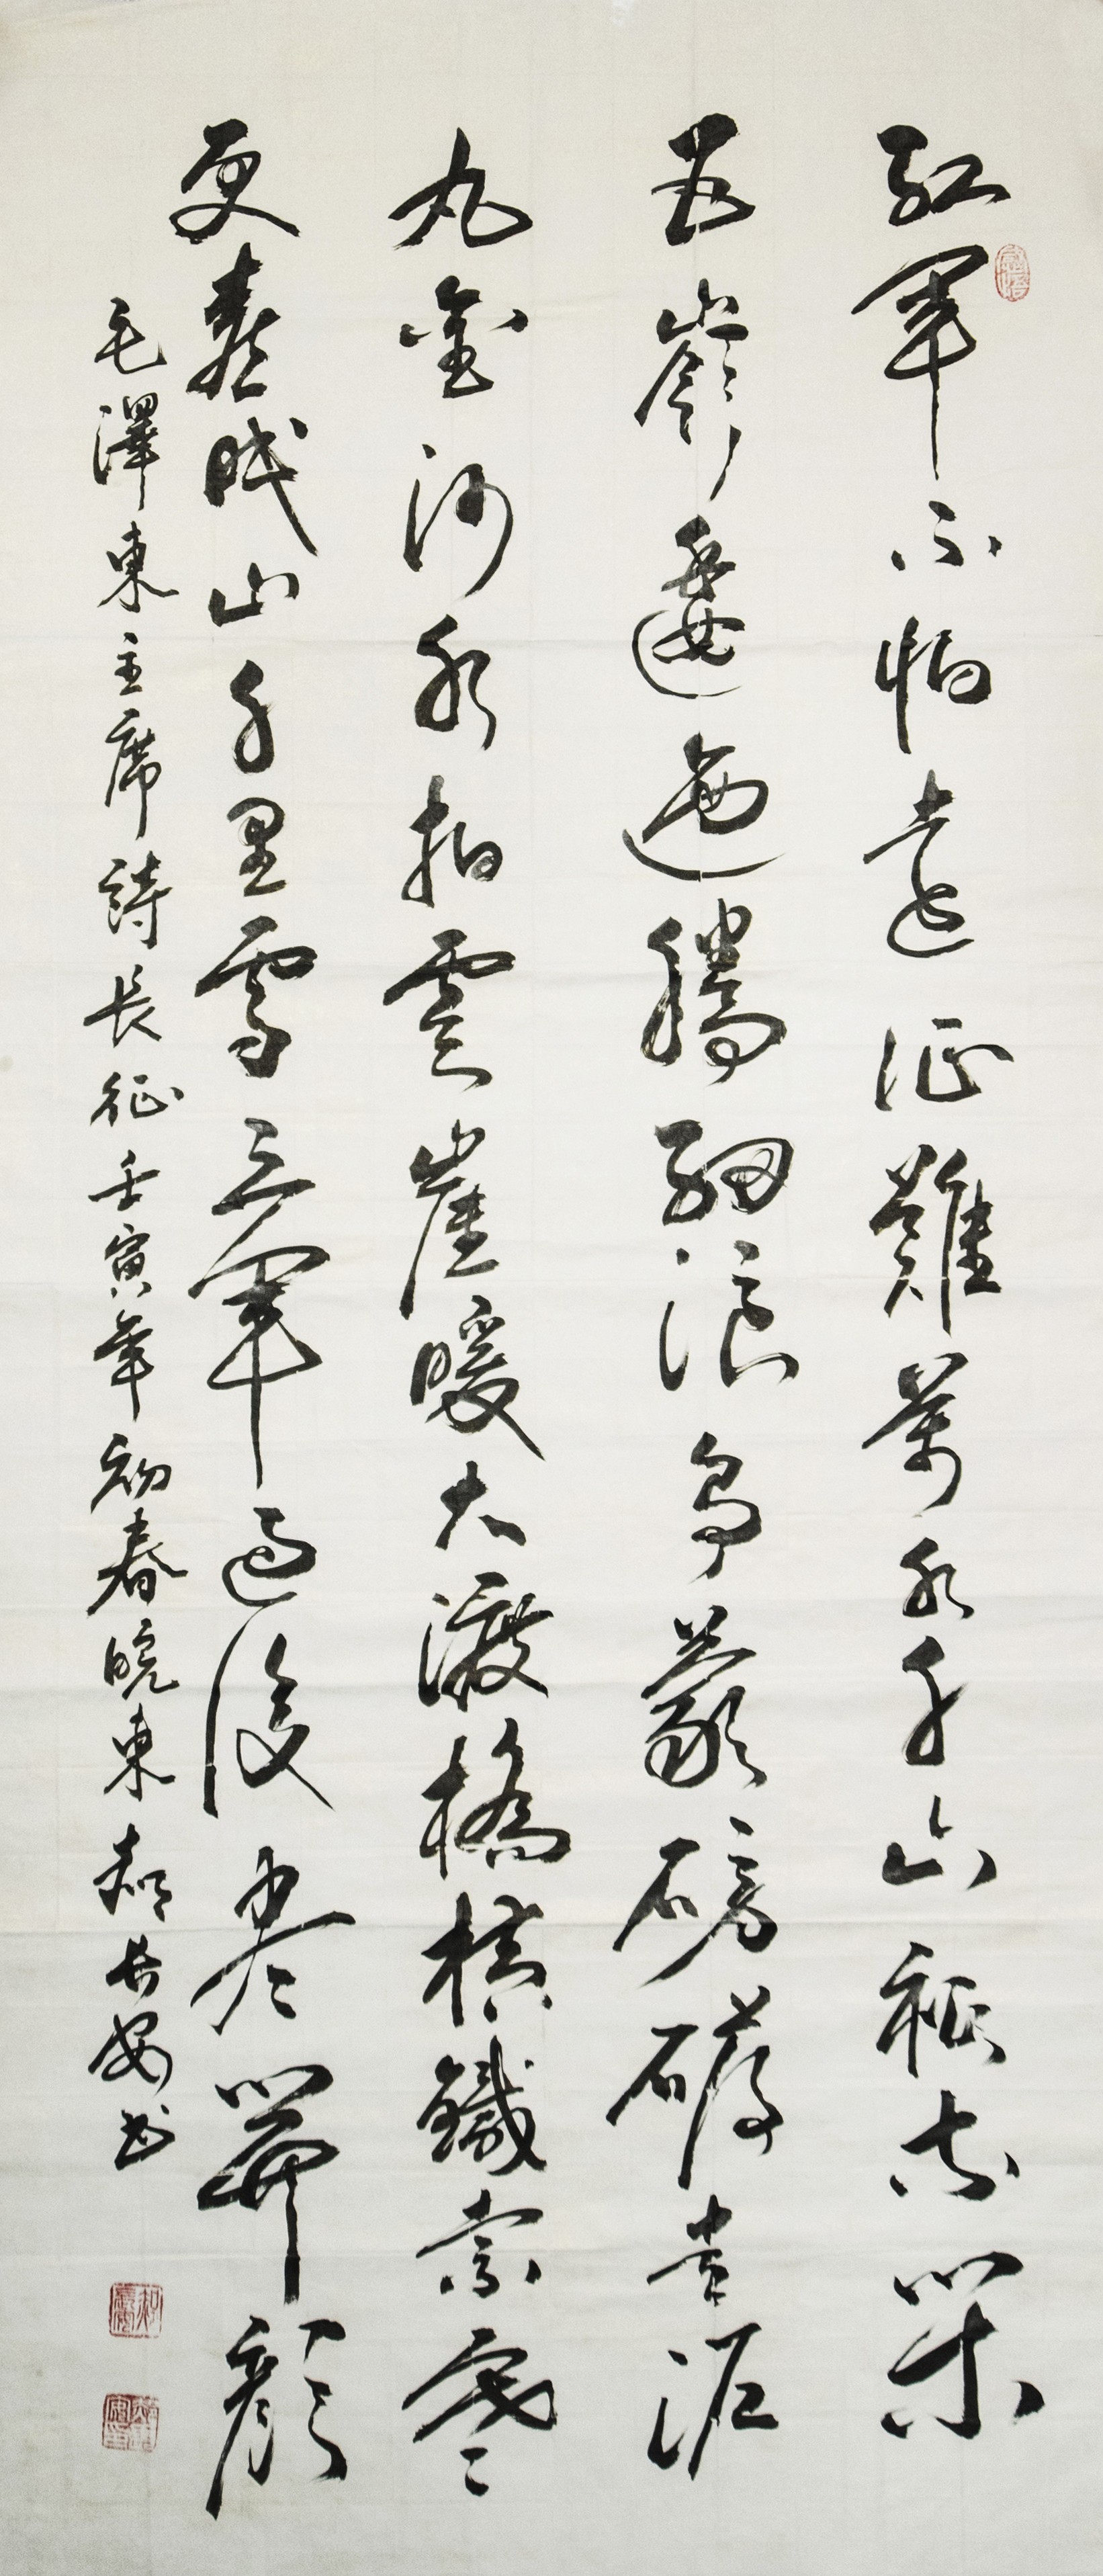 紅軍不怕遠征難萬水千山祇等閑
五嶺逶迤騰細浪烏蒙磅礴走泥
丸金沙水拍雲崖暖大渡橋橫鐵索寒
更喜岷山千里雪三軍過後盡開顏
毛澤東主席詩長征壬寅年初春皖東郝長安書